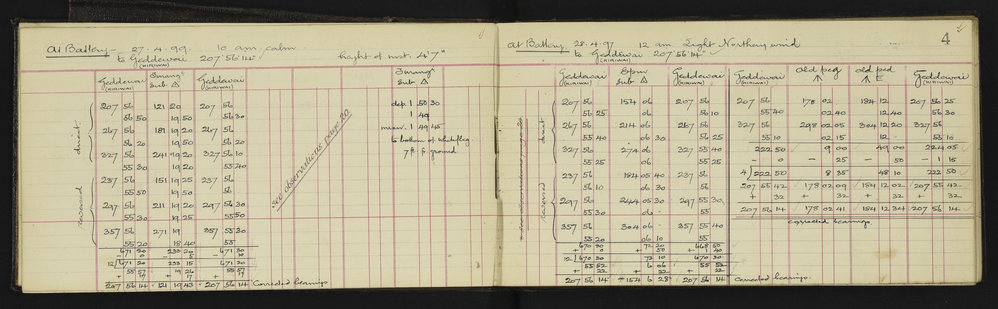 At Battery - 27.4.99. 10 am calm
to Geddewai 207° 56' 14" height of inst 4' 7"
(KIRIWAI)
Geddewai Geddewai
(KIRIWAI) Sub. Δ (KIRIWAI) Sub Δ
direct
207 56 121 20 207 56 dep. 1 50 30
56 50 19 50 56 30 1 49
267 56 181 19 20 267 56 mean. 1 49 45
56 20 19 50 56 20 to bottom of whiteflag
327 56 241 19 20 327 56 10 7 ft to ground
55 30 19 20 55 40
reversed
237 56 151 19 25 237 56
55 50 19 50 56
297 56 211 19 20 297 56 30
55 30 19 25 55 50
357 56 271 19 357 55 30
55 20 18 40 55
671 20 233 20 671 30
12) 671 20 233 15 671 20
55 57 19 26 55 57
+ 17 + 17 + 17
207 56 14 121 19 43 207 56 14 Corrected bearings
See observations page 80
At Battery 28.4.97 12 am Light Northerly wind 4
to Geddewai 207° 56' 14"
(KIRIWAI)
Geddewai Spur Geddewai Geddewai old peg old peg Geddewai
(KIRIWAI) Sub Δ (KIRIWAI) (KIRIWAI) E (KIRIWAI)
direct
207 56 154 06 207 56 207 56 178 02 184 12 207 56 25
56 25 06 56 10 55 40 02 40 12 40 56 30
267 56 214 06 267 56 327 56 298 02 05 304 12 20 327 56
55 40 06 30 56 25 55 10 02 15 12 55 10
327 56 274 06 327 55 40 222 50 9 00 49 00 224 05
55 25 06 55 25 - 0 - 25 - 50 - 1 15
reversed
237 56 184 05 40 237 56 4) 222 50 8 35 48 10 222 50
56 10 06 30 56 207 55 42 178 02 09 184 12 02 207 55 42
297 56 244 05 30 297 55 30 + 32 + 32 + 32 + 32
55 30 06 55 207 56 14 178 02 41 184 12 34 207 56 14
357 56 304 06 357 55 40 corrected bearings
55 20 06 10 55
670 30 72 20 668 50
12) 670 30 72 10 670 30
55 52 6 06 55 52
+ 22 + 22 + 22
207 56 14 154 6 28 207 56 14 Corrected bearings